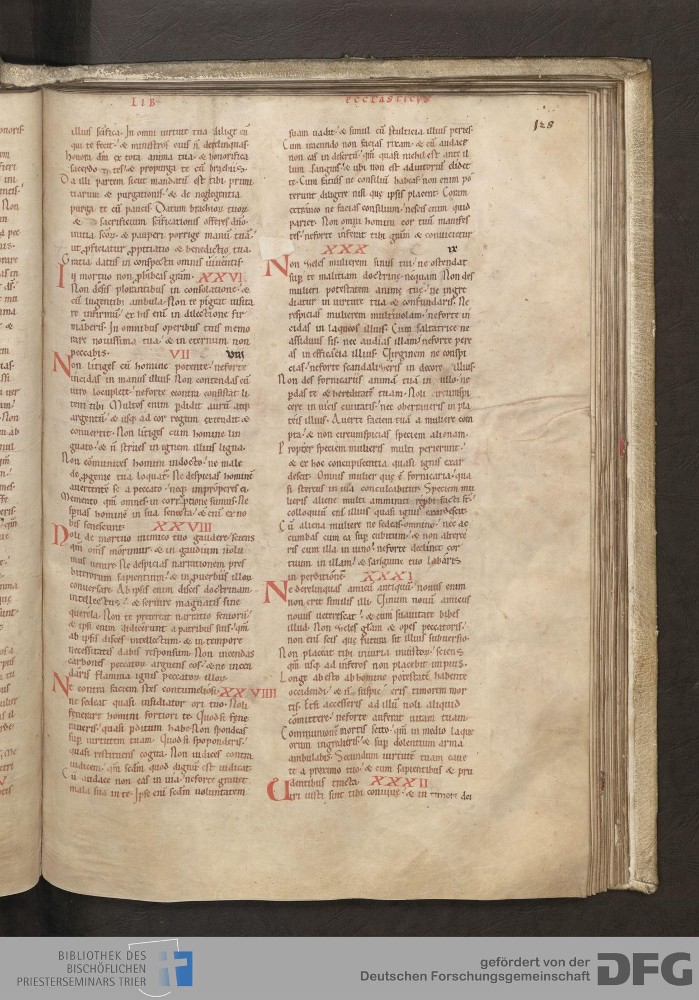 LIB
ECCLASTICVS
128
illius sc̄ifica. In omni uirtute tua dilige eū
qui te fecit. & ministros eius n̄ derelinquas.
honora dm̄ ex tota anima tua. & honorifica
sacerdotes. & propurga te cū brachiis.
Da illi partem sicut mandatū est tibi primi
tiarum & purgationis. & de neglegentia
purga te cū paucis. Datum brachiorū tuorū
& sacrificium sc̄ificationis offeres dn̄o.
initia scōrum. & pauperi porrige manū tuā.
ut p̄ficiatur ppitiatio & benedictio tua.
Gratia datus in conspectu omnis uiuentis.
& mortuo non phibeas grām. XXVI
Non desis plorantibus in consolatione. &
cū lugentibus ambula. Non te pigeat uisita
re infirmū. ex his enī in dilectione fir
maberis. In omnibus operibus tuis memo
rare nouissima tua. & in eternum non
peccabis. VII VIII
Non litiges cū homine potente. neforte
incidas in manus illius. Non contendas cū
uiro locuplete. neforte econtra constituat li
tem tibi. Multos enim pdidit aurū atq;
argentū. & usq; ad cor regum extendit &
conuertit. Non litiges cum homine lin
guato. & n̄ strues in ignem illius ligna.
Non cōmunices homini indocto. ne male
de pgenie tua loquat̄. Ne despicias hominē
auertentē se a peccato. neq; improperes ei.
Memento qm̄ omnes in corruptione sumus. Ne
spnas hominē in sua senecta. & enī ex no
bis senescunt. XXVIII
Noli de mortuo inimico tuo gaudere. sciens
qm̄ om̄s morimur. & in gaudium nolu
mus uenire. Ne despicias narrationem pres
biterorum sapientium. & in puerbiis illorū
conuersare. Ab ipsis enim disces doctrinam
intellectus. & seruire magnatis sine
querela. Non te pretereat narratio seniorū.
& ipsi enim didicerunt a patribus suis. qm̄
ab ipsis disces intellectum. & in tempore
necessitatis dabis responsum. Non incendas
carbones peccatorū arguens eos. & ne incen
daris flamma ignis peccatorū illorū.
Ne contra faciem stes contumeliosi. XXVIIII
ne sedeat quasi insidiator ori tuo. Noli
fenerare homini fortiori te. Quodsi fene
raueris. quasi pditum habe. Non spondeas
sup uirtutem tuam. Quodsi spoponderis.
quasi restituens cogita. Non iudices contra
iudicem. qm̄ scdm quod dignū est iudicat.
Cū audace non eas in uia. neforte grauet
mala sua in te. Ipse enī scdm uoluntatem
suam uadit. & simul cū stultitia illius peries.
Cum iracundo non facias rixam. & cū audace
non eas in desertū. qm̄ quasi nichil est ante il
lum sanguis. & ubi non est adiutoriū elidet
te. Cum fatuis ne consiliū habeas. non enim po
terunt diligere nisi que ipsis placent. Coram
extraneo ne facias consilium. nescis enim quid
pariet. Non omni homini cor tuū manifes
tes. neforte inferat tibi grām & conuicietur
XXX IX
Non zeles mulierem sinus tui. ne ostendat
sup te malitiam doctrine nequam. Non des
mulieri potestatem anime tue. ne ingre
diatur in uirtute tua & confundaris. Ne
respicias mulierem multiuolam. neforte in
cidas in laqueos illius. Cum saltatrice ne
assiduus sis. nec audias illam. neforte pere
as in efficacia illius. Uirginem ne conspi
cias. neforte scandalizeris in decore illius.
Non des fornicariis animā tuā in ullo. ne
pdas te & hereditatē tuam. Noli circumspi
cere in uicis ciuitatis. nec oberraueris in pla
teis illius. Auerte faciem tuā a muliere com
pta. & non circumspicias speciem alienam.
Propter speciem mulieris multi perierunt.
& ex hoc concupiscentia quasi ignis exar
descit. Omnis mulier que ē fornicaria. qua
si stercus in uia conculcabitur. Speciem mu
lieris aliene multi admirati reprobi facti st̄.
colloquiū enī illius quasi ignis exardescit.
Cū aliena muliere ne sedeas omnino. nec ac
cumbas cum ea sup cubitum. & non alterce
ris cum illa in uino. neforte declinet cor
tuum in illam. & sanguine tuo labaris
in perditionē. XXXI
Ne derelinquas amicū antiquū. nouus enim
non erit similis illi. Uinum nouū amicus
nouus. ueterescat. & cum suauitate bibes
illud. Non zeles glām & opes peccatoris.
non enī scis que futura sit illius subuersio.
Non placeat tibi iniuria iniustorū. sciens
qm̄ usq; ad inferos non placebit impius.
Longe abesto ab homine potestatē habente
occidendi. & n̄ suspicaberis timorem mor
tis. Etsi accesseris ad illū noli aliquid
comittere. neforte auferat uitam tuam.
Communionē mortis scito. qm̄ in medio laque
orum ingredieris. & sup dolentium arma
ambulabis. Secundum uirtutē tuam caue
te a proximo tuo. & cum sapientibus & pru
dentibus tracta. XXXII
Uiri iusti sint tibi conuiuę. & in timore dei
BIBLIOTHEK DES
BISCHÖFLICHEN
PRIESTERSEMINARS TRIER
gefördert von der
Deutschen Forschungsgemeinschaft
DFG